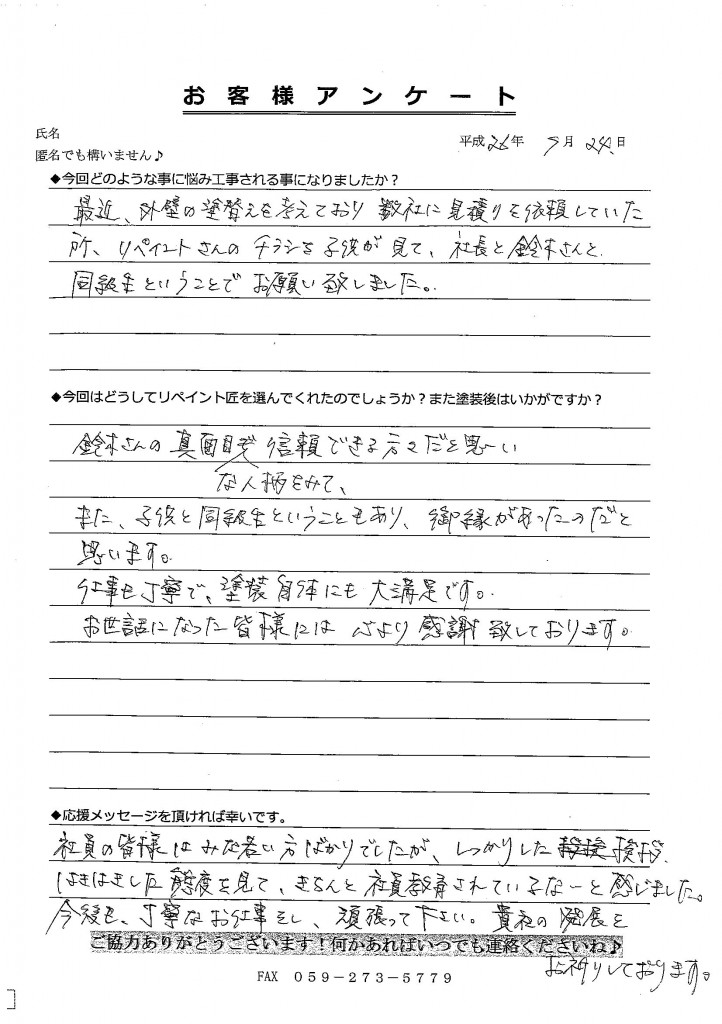 お客様アンケート
氏名
平成26年 9月 24.日
匿名でも構いません♪
◆今回どのような事に悩み工事される事になりましたか？
最近、外壁の塗替えを考えており 数社に見積りを依頼していた
所、リペイントさんのチラシを子供が見て、社長と鈴木さんと
同級生ということで お願い致しました。
◆今回はどうしてリペイント匠を選んでくれたのでしょうか？また塗装後はいかがですか？
鈴木さんの真面目 信頼できる方々だと思い
な人柄をみて、
また、子供と同級生ということもあり、御縁があったのだと
思います。
仕事も丁寧で、塗装自体にも大満足です。
お世話になった皆様には 心より感謝致しております。
◆応援メッセージを頂ければ幸いです。
社員の皆様はみな若い方ばかりでしたが、しっかりした 挨拶、
はきはきした態度を見て、きちんと社員教育されているなーと感じました。
今後も、丁寧なお仕事をし、頑張って下さい。貴社の発展を
ご協力ありがとうございます！何かあればいつでも連絡くださいね♪
お祈りしております。
FAX 059-273-5779